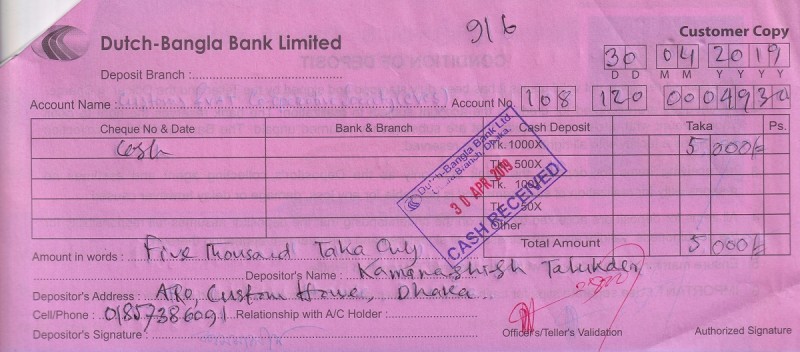 9/6
Customer Copy
Dutch-Bangla Bank Limited
30 04 2019
D D M M Y Y Y Y
Deposit Branch :
Account Name : Account No. 108 120 0004932
Cheque No & Date Bank & Branch Cash Deposit Taka Ps.
Cash Tk. 1000X 5000/-
Tk. 500X
Tk. 100X
Tk. 50X
Other
Total Amount 5000/-
Dutch-Bangla Bank Ltd.
Branch, Dhaka.
30 APR 2019
CASH RECEIVED
Amount in words : Five Thousand Taka Only
Depositor's Name : Kamanashish Talukder
Depositor's Address : ARO, Custom House, Dhaka.
Cell/Phone : 01857386091 Relationship with A/C Holder :
Depositor's Signature : Officer's/Teller's Validation Authorized Signature